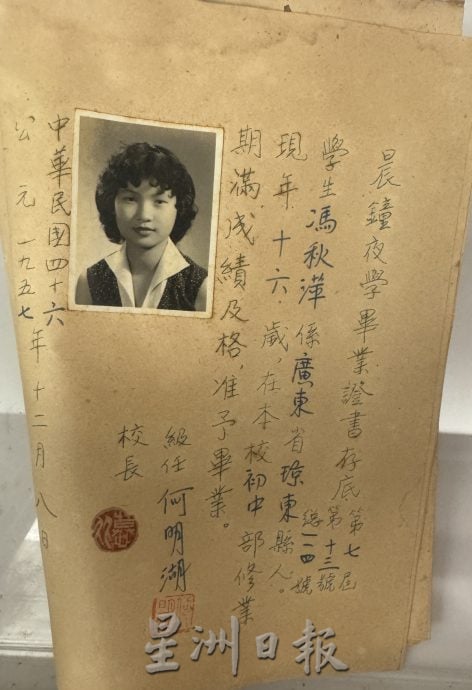 晨鐘夜學畢業證書存底
第七屆
第十三號
總一一四號
學生馮秋萍係廣東省瓊東縣人。
現年十六歲，在本校初中部修業
期滿，成績及格，准予畢業。
級任何明湖
校長
中華民國四十六
公元一九五七年十二月八日
星洲日報